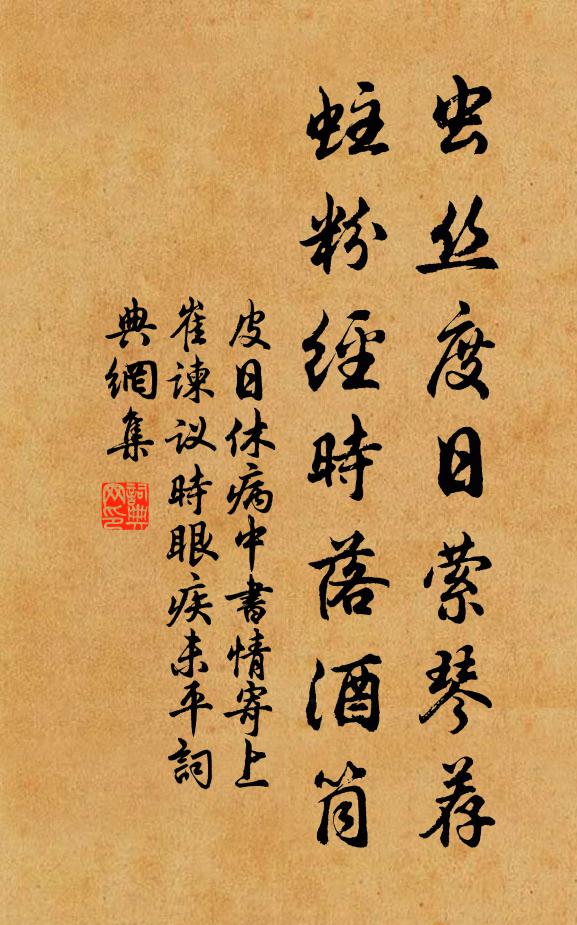 虫丝度日萦琴荐
蛀粉經時落酒筒
皮日休病中書情寄上
崔諫议時眼疾未平詞
典網集
詞典
网印